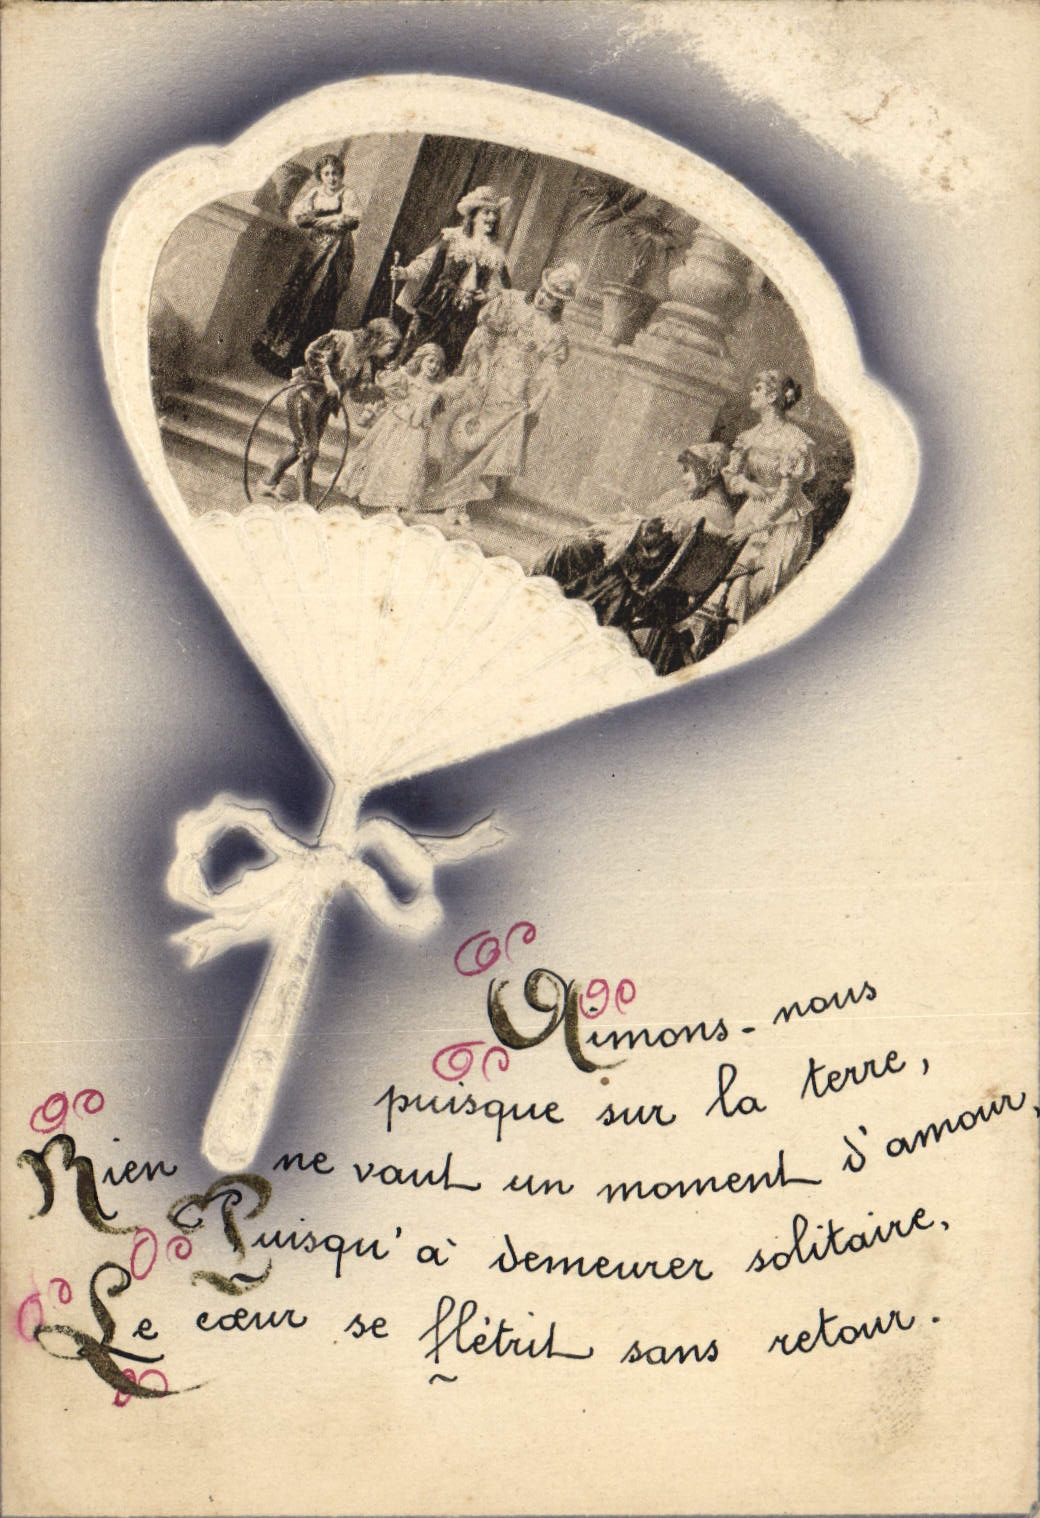 Aimons-nous
puisque sur la terre,
Rien ne vaut un moment d'amour,
Puisqu'à demeurer solitaire,
Le cœur se flétrit sans retour.